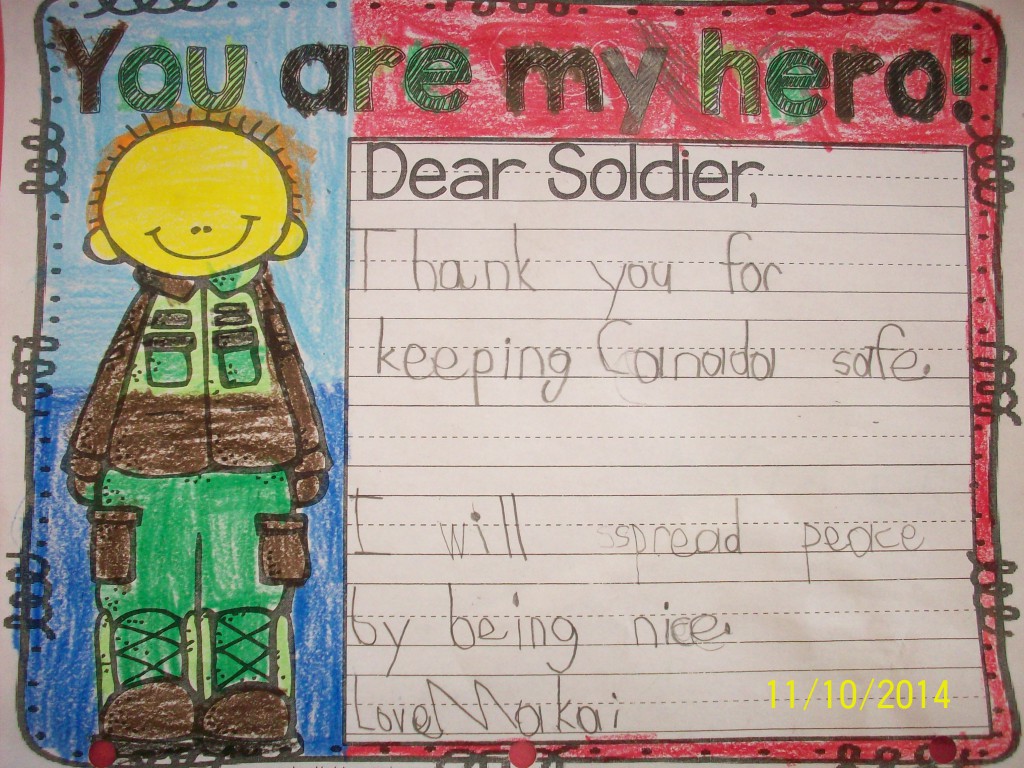 You are my hero!
Dear Soldier,
Thank you for
keeping Canada safe.
I will sspread peace
by being nice.
Love Makai
11/10/2014